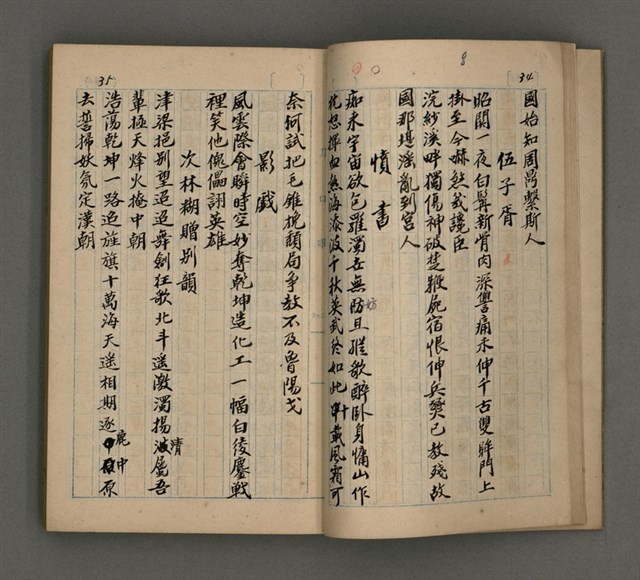 34
國始知周鼎繫斯人
伍子胥
昭關一夜白鬂新骨肉深讐痛未伸千古雙眸門上
掛至今嚇煞我讒臣
浣紗溪畔獨傷神破楚鞭屍宿恨伸兵燹已教殘故
國那堪淫亂到宮人
憤書
痴未宇宙欲包羅濁世無防且縱歌醉臥身慵山作
枕想揮血熱海添波千秋英武終如此卅載風霜可
妨
35
奈何試把毛錐挽頹局爭教不及魯陽戈
影戲
風雲際會瞬時空妙奪乾坤造化工一幅白綾鏖戰
裡笑他傀儡詡英雄
次林糊贈別韻
津梁挹別望迢迢舞劍狂歌北斗遙激濁揚清屬吾
輩極天烽火掩中朝
浩蕩乾坤一路迢旌旗十萬海天遙相期逐鹿中原
去誓掃妖氛定漢朝